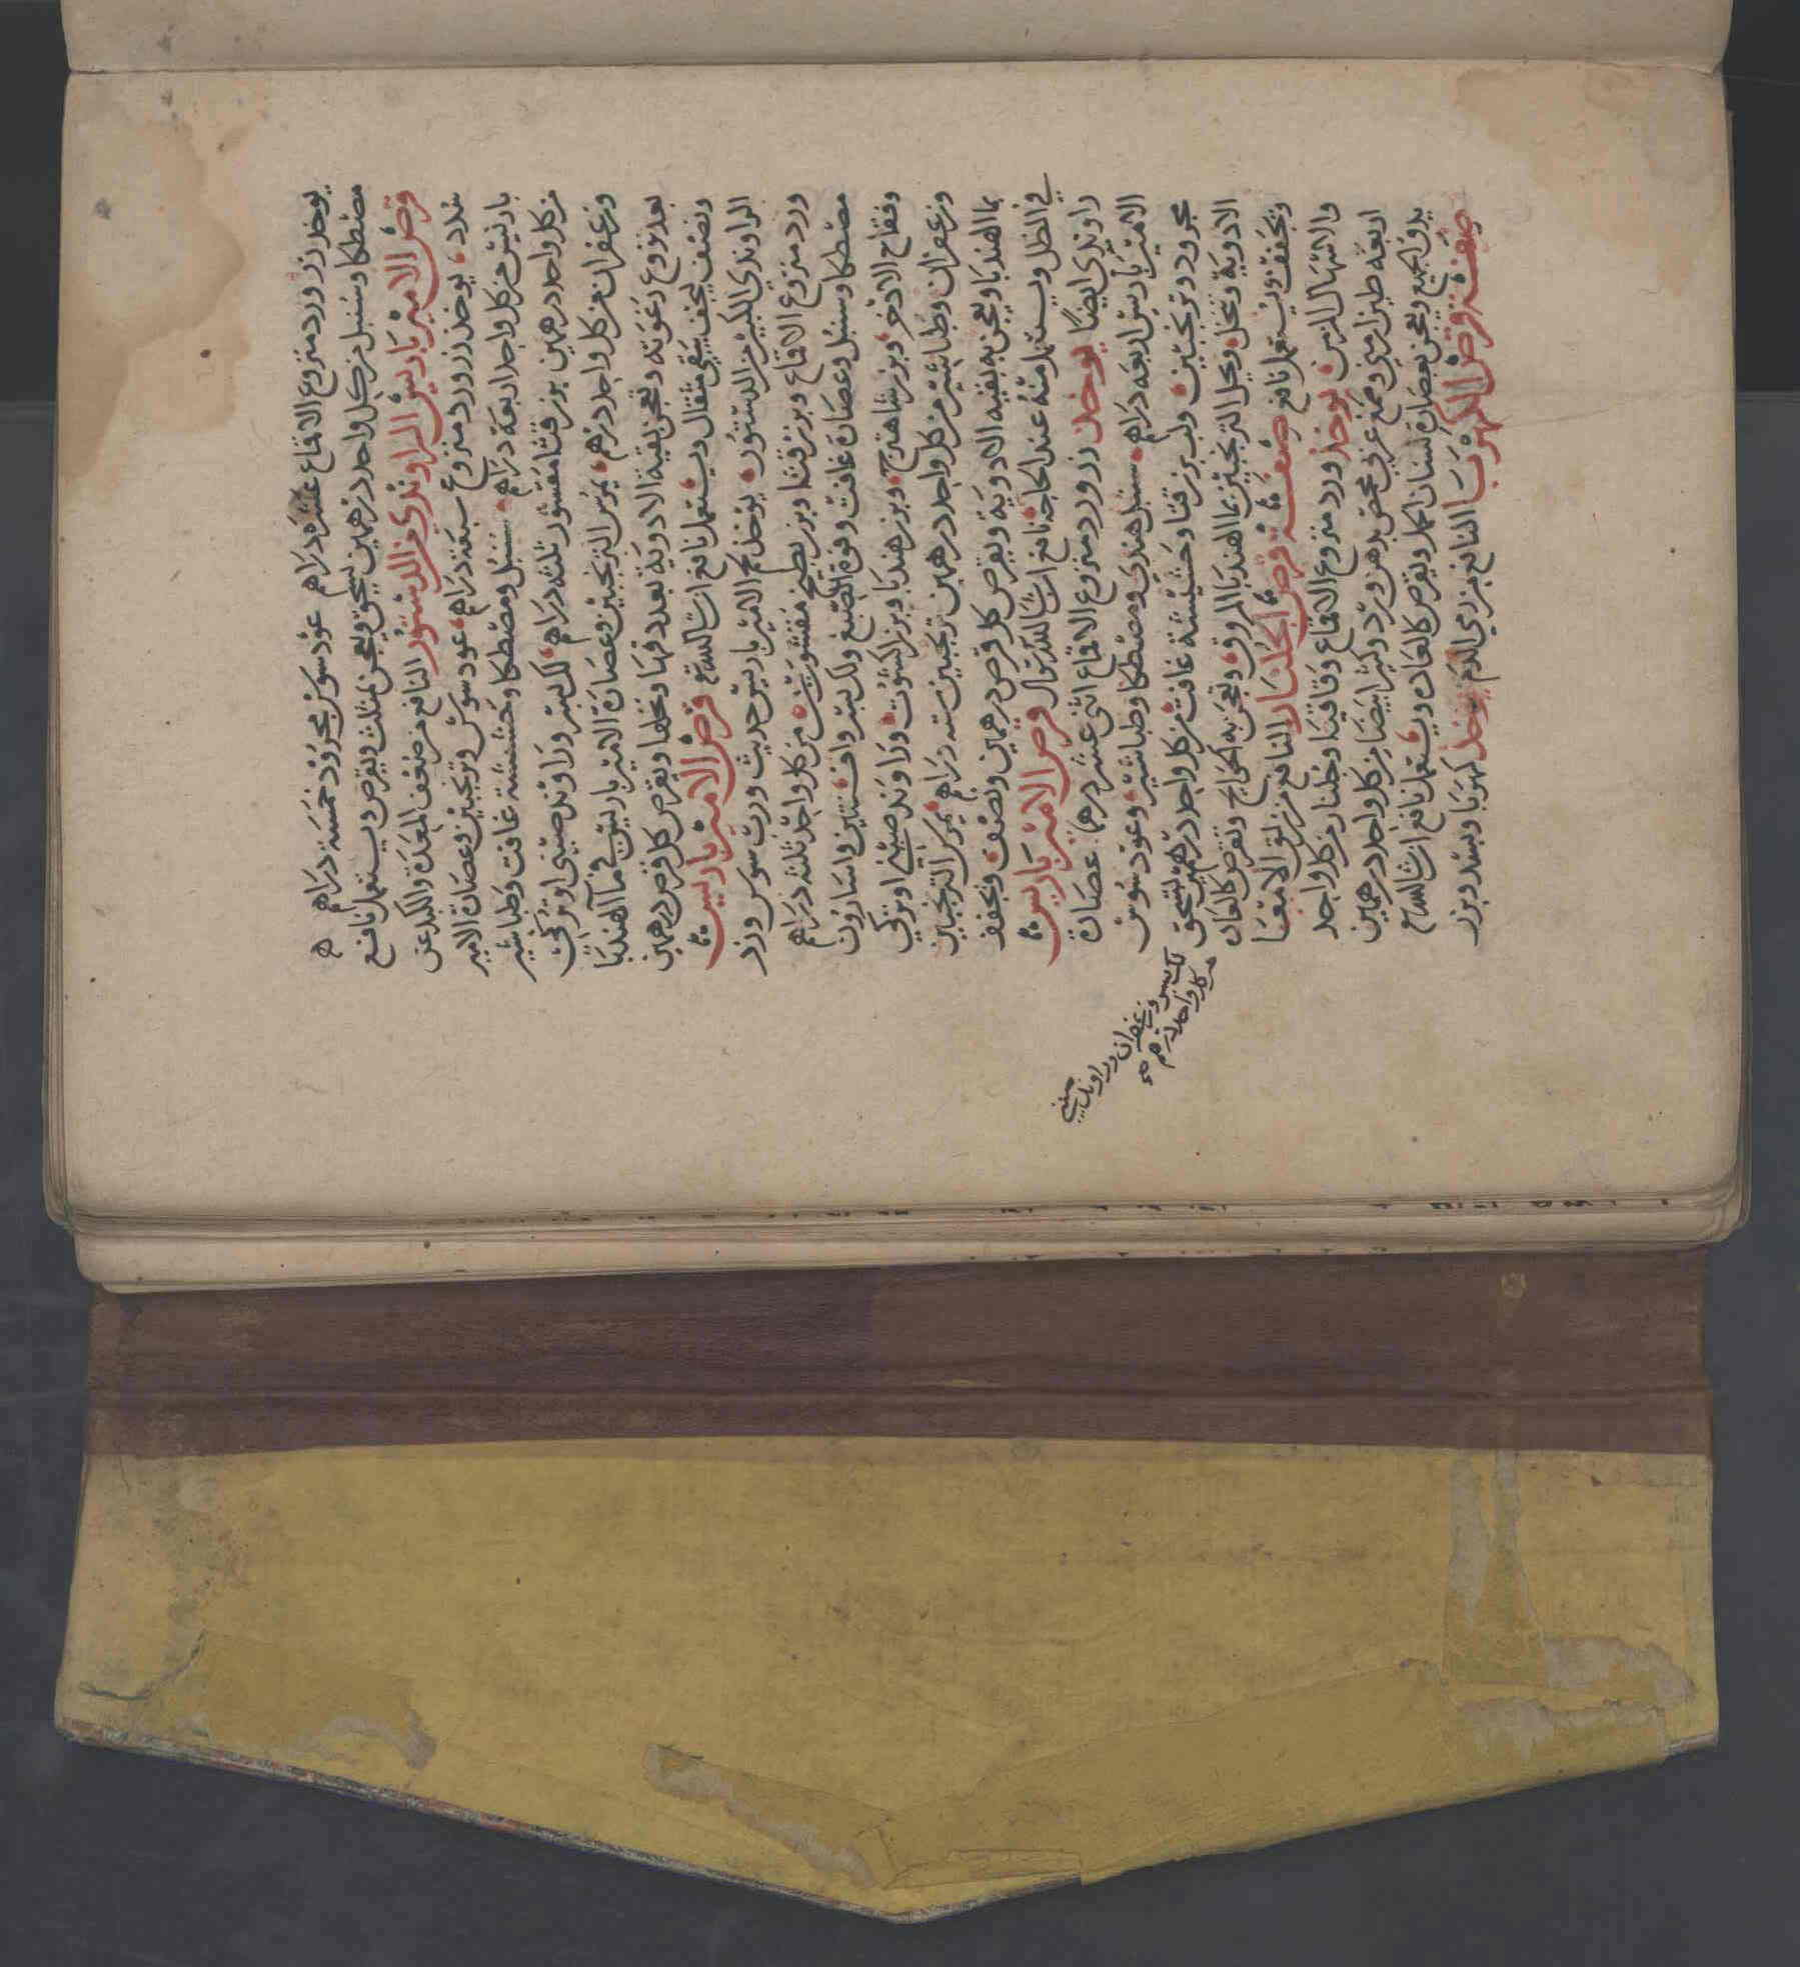 يوخذ زر ورد منزوع الاقماع عشره دراهم عود سوس مجرود خمسة دراهم
مصطكا وسنبل من كل واحد درهمين يسحق ويعجن بمثلث ويقرص ويستعمل نافع
قرص الامير باريس الراوندي من الدستور النافع من ضعف المعدة والكبد عن
سدد يوخذ زر ورد منزوع سبعة دراهم عود سوس وترنجبين وعصارة الامير
باريس من كل واحد اربعة دراهم سنبل ومصطكا وحشيشة غافت وطباشير
من كل واحد درهمين بزر قثا مقشور ثلثه دراهم لك بسر وراوند صيني او تركي
وزعفران من كل واحد درهم يمرس الترنجبين وعصارة الامير باريس في ما الهندبا
بعد نزوع رغوته وتعجن بقية الادوية بعد دقها ونخلها ويقرص كل قرص درهمين
ونصف يجفف يسقى مثقال ويستعمل نافع ان شا الله تع قرص الامير باريس
الراوندي الكبير من الدستور يوخذ لحم الامير باريس حديث ورب سوس وزر
ورد منزوع الاقماع وبزر قثا وبزر بطيخ مقشورين من كل واحد ثلثه دراهم
مصطكا وسنبل وعصارة غافت وفوة الصبغ ولك بسر وافسنتين واسارون
وفقاح الاذخر وبزر شاهترج وبزر هندبا وبزر كشوث وراوند صيني او تركي
وزعفران وطباشير من كل واحد درهمين ترنجبين سته دراهم يمرس الترنجبين
بما الهندبا ويعجن به بقيه الادوية ويقرص كل قرص درهمين ونصف وتجفف
في الظل ويستعمل منه عند الحاجه نافع ان شا الله تعالى قرص الامير باريس
راوندي ايضا يوخذ زر ورد منزوع الاقماع اثني عشر درهما عصارة
الامير باريس اربعه دراهم سنبل هندي ومصطكا وطباشير وعود سوس
مجرود وترنجبين ولب بزر قثا وحشيشة غافت من كل واحد درهمين تسحق
الادوية وتنخل ويحل الترنجبين بما الهندبا المروق وتعجن به الحوايج وتقرص كالعادة
وتجفف ويستعمل نافع صفة قرص الجلنار النافع من زلق الامعا
والاسهال المزمن يوخذ ورد منزوع الاقماع وقاقيا وجلنار من كل واحد
اربعه طين ارمني وصمغ عربي محمص بدهن ورد وكثيرا بيضا من كل واحد درهمين
يدق الجميع ويعجن بعصارة لسان الحمل ويقرص كالعادة ويستعمل نافع ان شا الله تع
صفة قرص الكهربا النافع من رمي الدم يوخذ كهربا وبسد وبزر
لك بسر وزعفران وراوند صيني
من كل واحد درهم